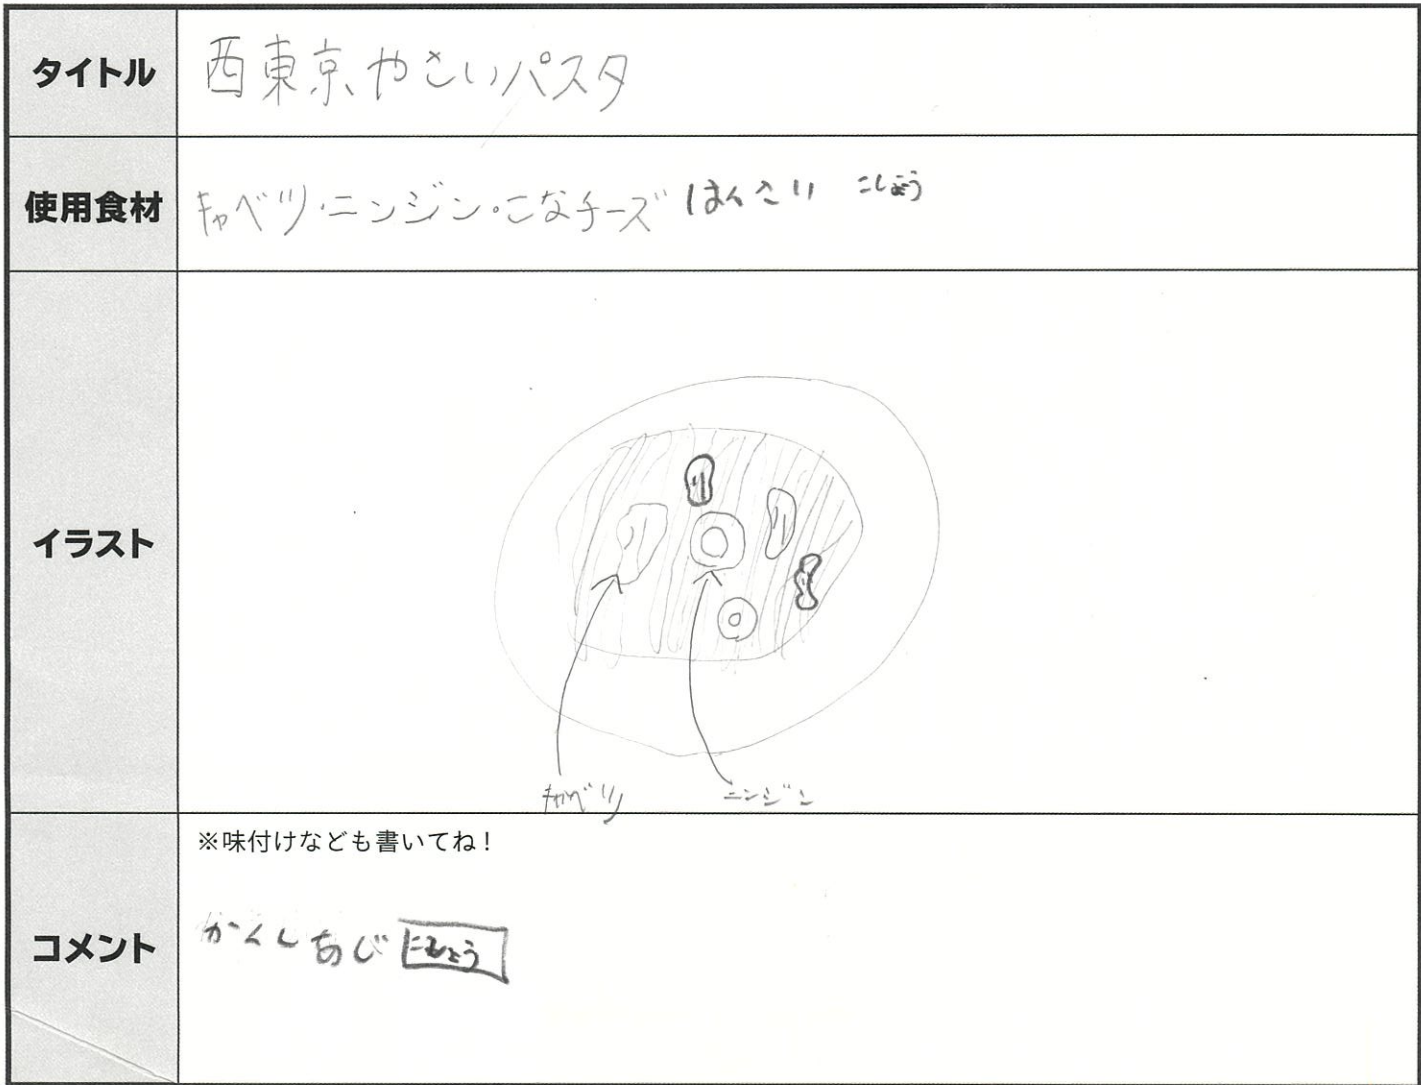 タイトル
西東京やさいパスタ
使用食材
キャベツ・ニンジン・こなチーズ はくさい こしょう
イラスト
キャベツ ニンジン
コメント
※味付けなども書いてね！
あじ こしょう